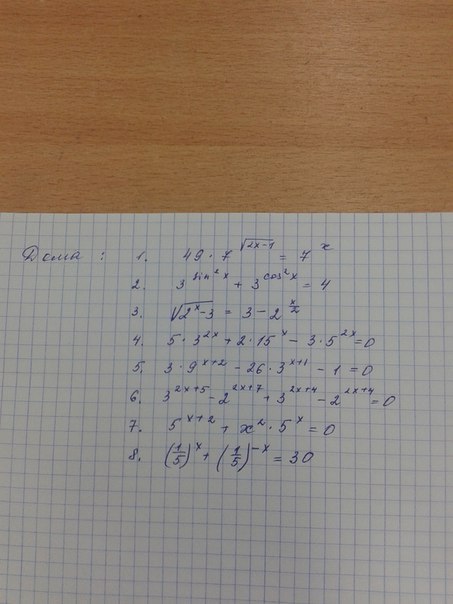 Дома: 1. 49·7^{√(2x-1)} = 7^x
2. 3^{sin²x} + 3^{cos²x} = 4
3. √(2^x-3) = 3-2^{x/2}
4. 5·3^{2x}+2·15^x-3·5^{2x}=0
5. 3·9^{x+2}-26·3^{x+1}-1=0
6. 3^{2x+5}-2^{2x+7}+3^{2x+4}-2^{2x+4}=0
7. 5^{x+2}+x²·5^x=0
8. (1/5)^x+(1/5)^{-x}=30